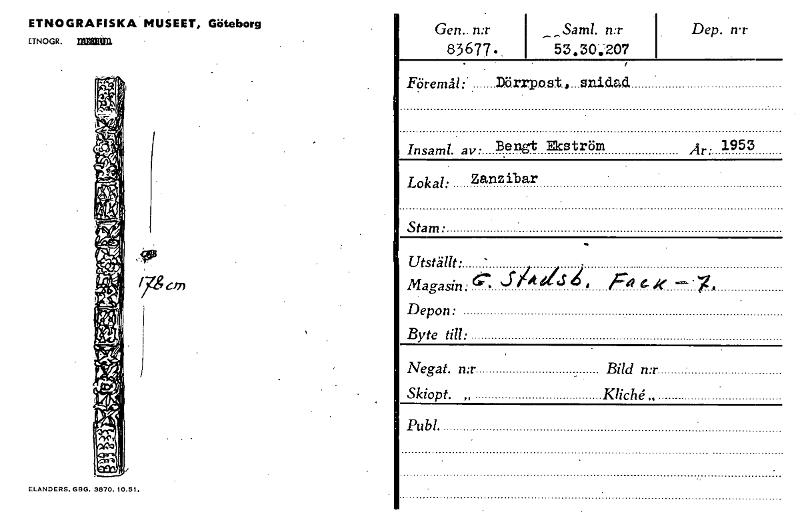 ETNOGRAFISKA MUSEET, Göteborg
ETNOGR.
178 cm
ELANDERS, GBG. 3870. 10.51.
Gen. n:r Saml. n:r Dep. n:r
83677. 53.30.207
Föremål: Dörrpost, snidad
Insaml. av: Bengt Ekström År: 1953
Lokal: Zanzibar
Stam:
Utställt:
Magasin: G. Stadsb. Fack - 7.
Depon:
Byte till:
Negat. n:r Bild n:r
Skiopt. „ Kliché „
Publ.